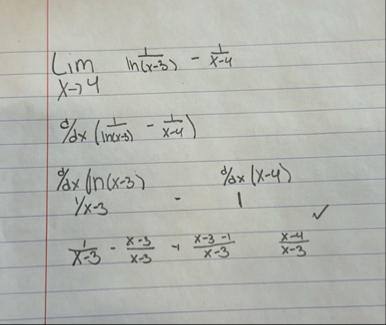 Lim 1/ln(x-3) - 1/x-4
x→4
d/dx (1/ln(x-3) - 1/x-4)
d/dx (ln(x-3) d/dx (x-4)
1/x-3 - 1
✓
1/x-3 - x-3/x-3 → x-3-1/x-3 x-4/x-3